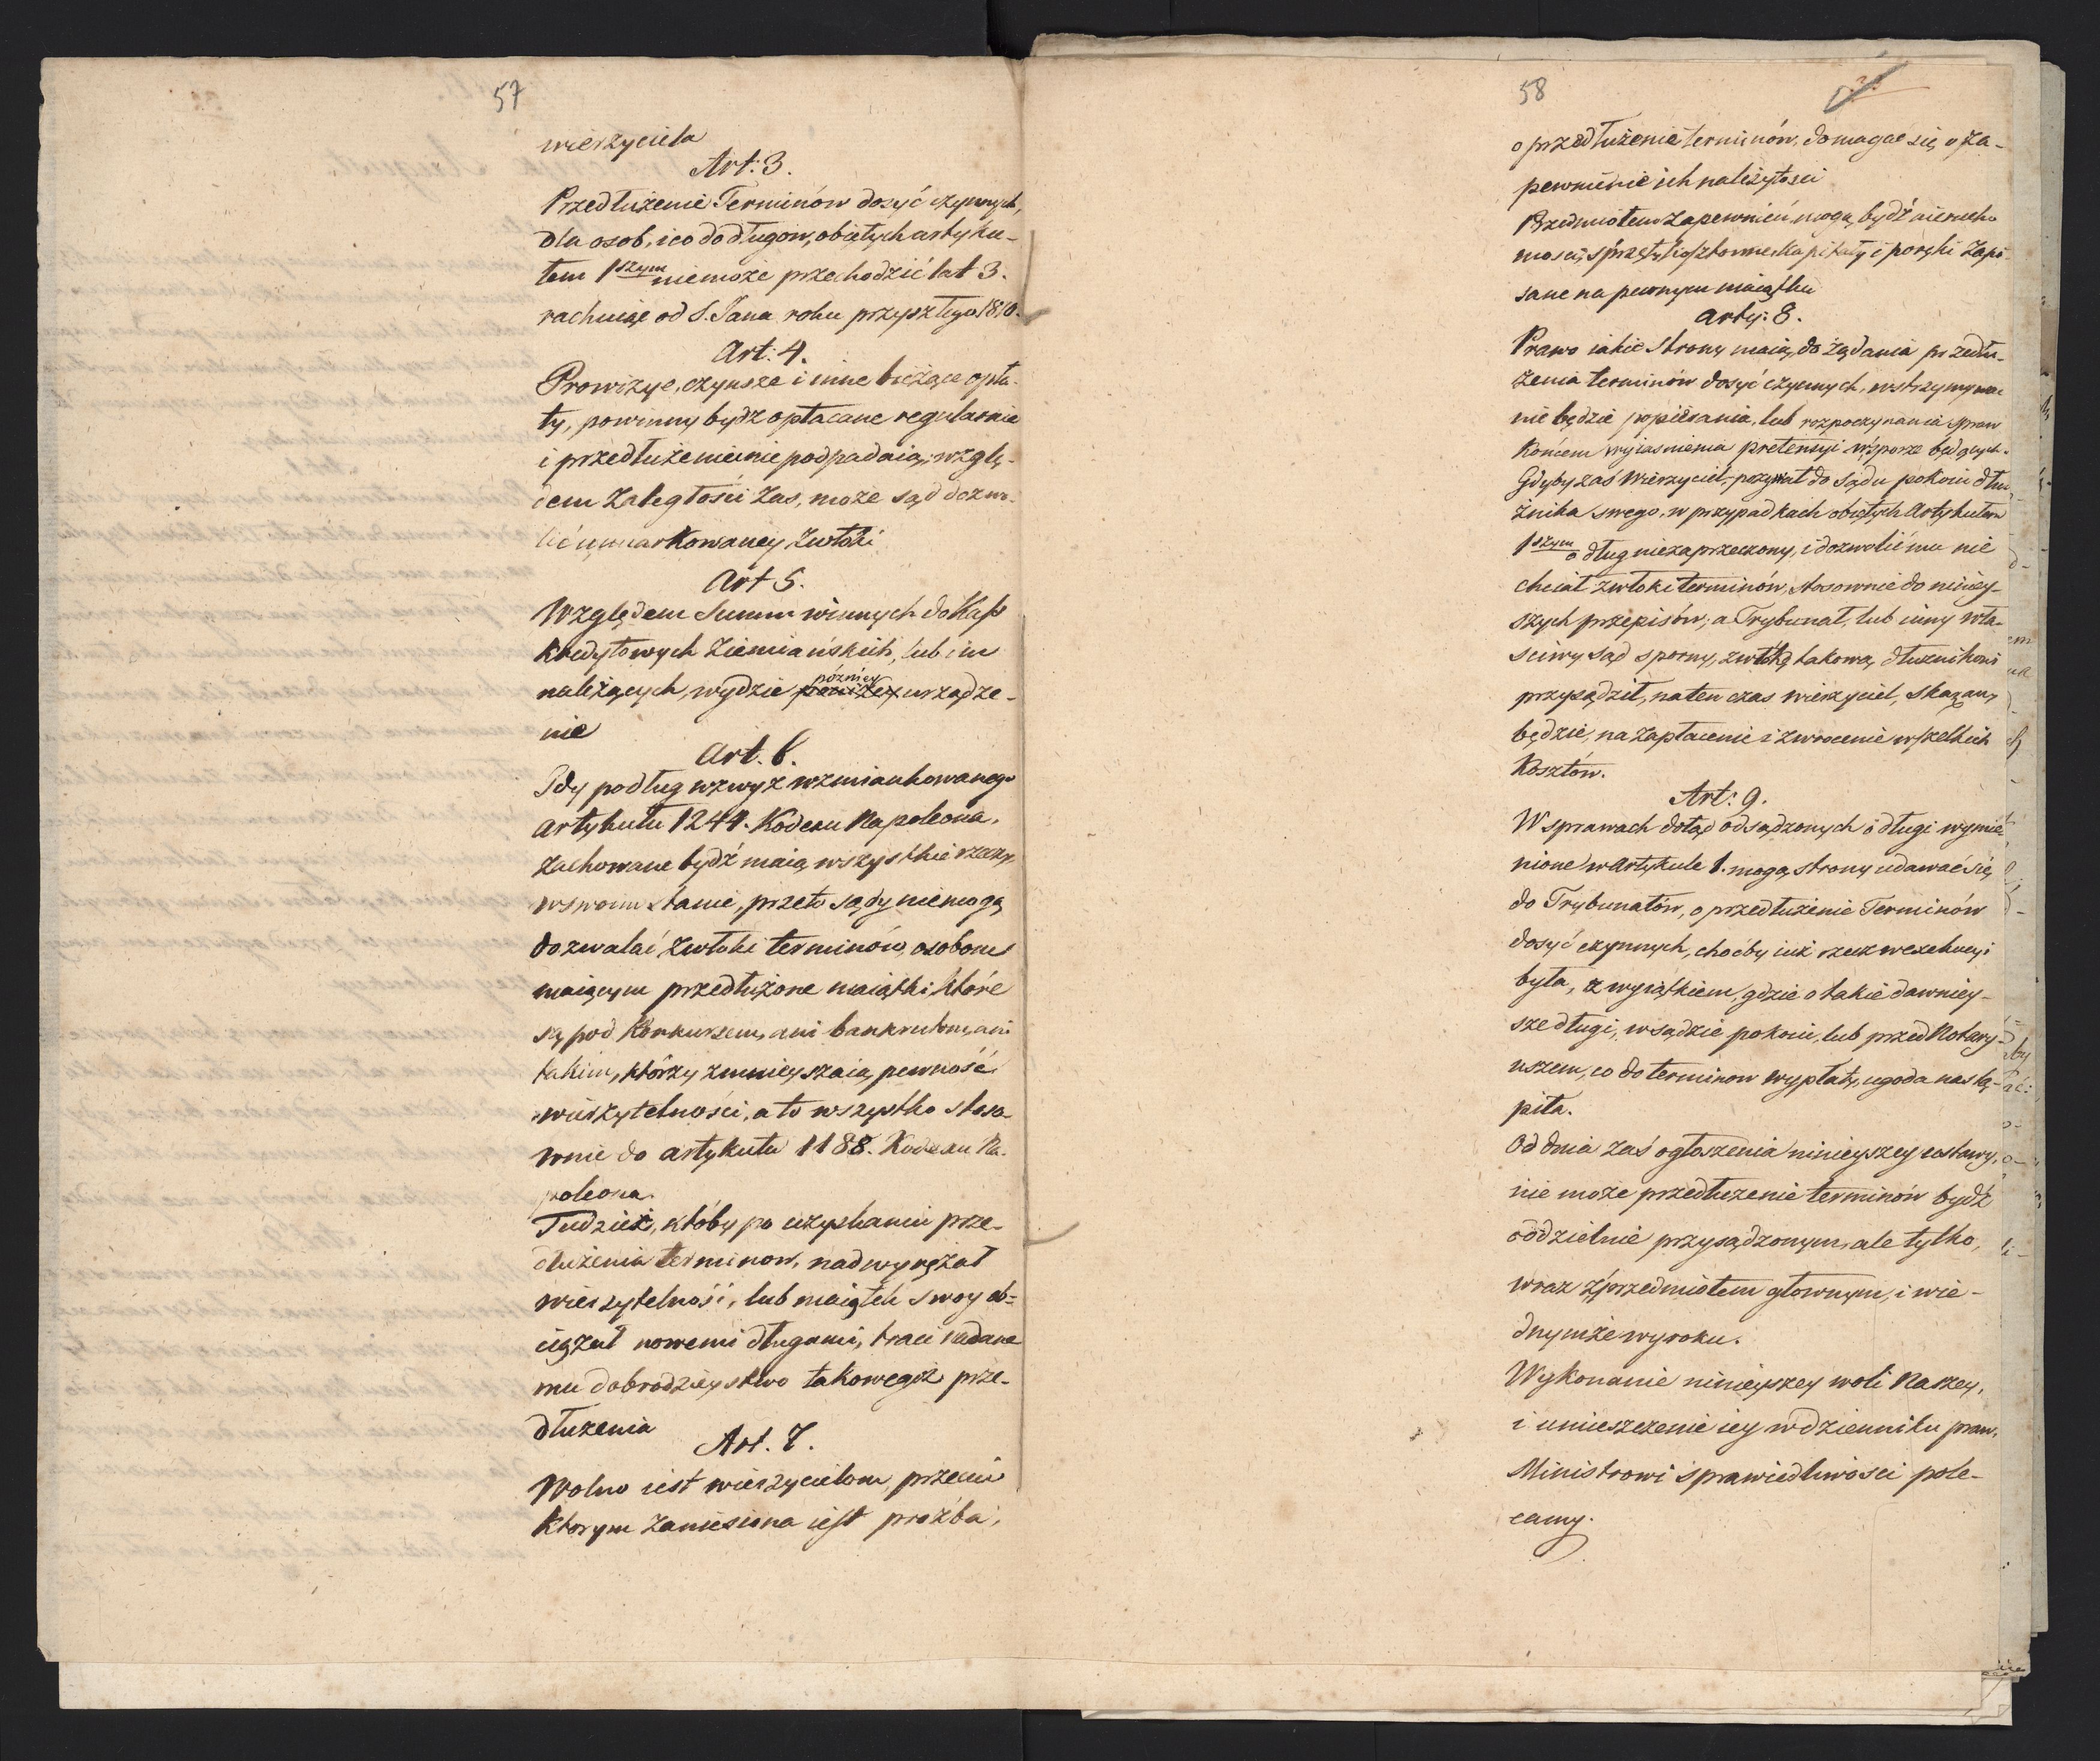 57
wierzyciela
Art: 3.
Przedłużenie Terminów dosyć czynnych,
dla osob, i co do długow, obiętych artyku-
łem 1szym niemoże przechodzić lat 3.
rachuiąc od S. Jana roku przyszłego 1810.
Art: 4.
Prowizye, czynsze i inne bieżące opła-
ty, powinny bydz opłacane regularnie
i przedłużeniu nie podpadaią; wzglę-
dem Zaległości zas, może sąd dozwo-
lić umiarkowaney zwłoki
Art 5.
Względem Summ winnych do Kass
Kredytowych Ziemiańskich, lub im
należących, wydzie poniżey urządze-
późniey
nie
Art. 6.
Gdy podług wzwyż wzmiankowanego
Artykułu 1244. Kodexu Napoleona,
zachowane bydź maią wszystkie rzeczy,
w swoim stanie, przeto sądy niemogą
dozwalać zwłoki terminów, osobom
maiącym przedłużone maiątki, które
są pod Konkursem, ani bankrutom, ani
takim, którzy zmnieyszaią pewność
wierzytelności, a to wszystko stoso-
wnie do artykułu 1188. Kodexu Na-
poleona.
Tudzież, ktoby po uzyskaniu prze-
dłużenia terminow, nadwyrężał
wierzytelność, lub maiątek swoy ob-
ciążał nowemi długami, traci nadane
mu dobrodzieystwo takowegoż prze-
dłużenia
Art. 7.
Wolno iest wierzycielom, przeciw
ktorym zaniesiona iest prośba,
58
o przedłużenie terminów, domagać się o za-
pewnienie ich należytosci
Przedmiotem zapewnień mogą bydź nierucho
mosci, sprzęty kosztowne, Kapitały i poręki zapi-
sane na pewnym maiątku
Arty: 8.
Prawo iakie Strony maią, do żądania przedłu-
żenia terminów dosyć czynnych, wstrzymywać
nie będzie popierania, lub rozpoczynania spraw
Koniem wyiasnienia pretensyi w sporze będących.
Gdyby zaś Wierzyciel, pozywał do Sądu pokoiu dłu-
żnika swego, w przypadkach obiętych Artykułem
1szym o dług niezaprzeczony, i dozwolić mu nie
chciał zwłoki terminów, stosownie do niniey-
szych przepisów; a Trybunał, lub inny wła-
sciwy sąd sporny, zwłokę takową dłużnikowi
przysądził, na ten czas wierzyciel, skazany
będzie, na zapłacenie i zwrocenie wszelkich
Kosztów.
Art: 9.
W sprawach dotąd odsądzonych o długi wymie
nione w Artykule 1. mogą strony udawać się
do Trybunałów, o przedłużenie Terminów
dosyć czynnych, choćby iuż rzecz w exekucyi
była, z wyiątkiem, gdzie o takie dawniey-
sze długi, w sądzie pokoiu, lub przed Notary-
uszem, co do terminow wypłaty, ugoda nastą-
piła.
Od dnia zaś ogłoszenia ninieyszey ustawy,
nie może przedłużenie terminów bydź
oddzielnie przysądzonym, ale tylko,
wraz z przedmiotem głownym, i w ie-
dnymże wyroku.
Wykonanie ninieyszey woli Naszey,
i umieszczenie iey w dzienniku praw,
Ministrowi sprawiedliwosci pole-
camy.